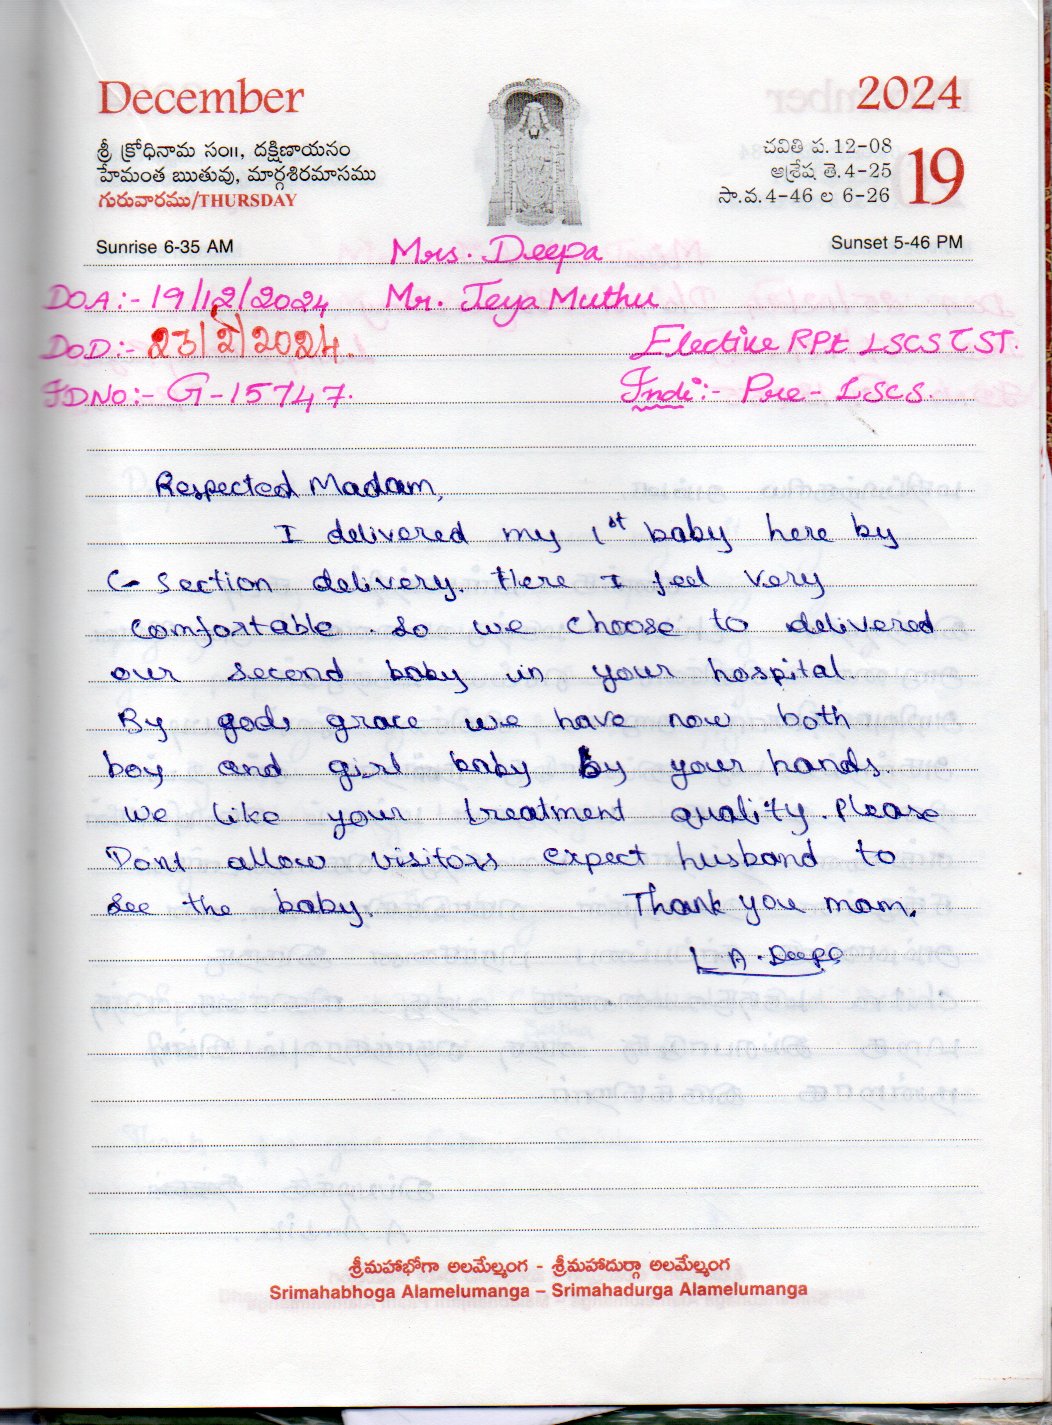 December
2024
శ్రీ క్రోధినామ సం॥, దక్షిణాయనం
హేమంత ఋతువు, మార్గశిరమాసము
గురువారము/THURSDAY
చవితి ప.12-08
ఆశ్రేష తె.4-25
సా.వ.4-46 ల 6-26
19
Sunrise 6-35 AM
Sunset 5-46 PM
Mrs. Deepa
DOA:- 19/12/2024 Mr. Jeya Muthu
DOD:- 23/12/2024. Elective RPt LSCS C ST.
IDNo:- G-15747. Indi:- Pre-LSCS.
Respected Madam,
I delivered my 1st baby here by
C-section delivery. Here I feel very
comfortable. So we choose to delivered
our second baby in your hospital.
By gods grace we have now both
boy and girl baby by your hands.
We like your treatment quality. Please
Dont allow visitors expect husband to
see the baby. Thank you mam.
A. Deepa
శ్రీమహాభోగా అలమేల్మంగ - శ్రీమహాదుర్గా అలమేల్మంగ
Srimahabhoga Alamelumanga – Srimahadurga Alamelumanga